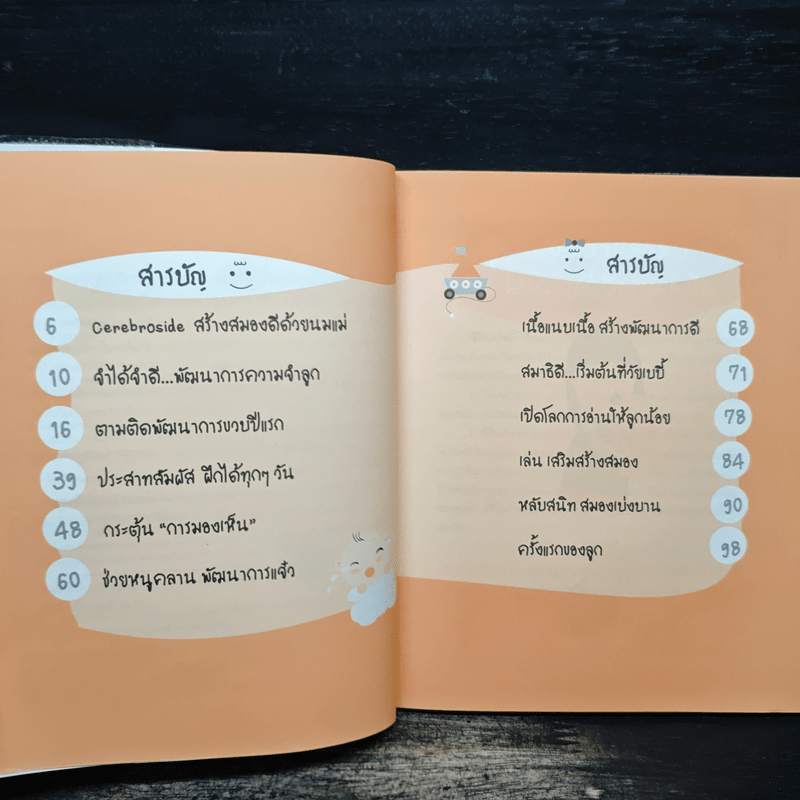 สารบัญ
6 Cerebroside สร้างสมองดีด้วยนมแม่
10 จำได้จำดี...พัฒนาการความจำลูก
16 ตามติดพัฒนาการขวบปีแรก
39 ประสาทสัมผัส ฝึกได้ทุกๆ วัน
48 กระตุ้น “การมองเห็น”
60 ช่วยหนูคลาน พัฒนาการแจ๋ว
สารบัญ
เนื้อแนบเนื้อ สร้างพัฒนาการดี 68
สมาธิดี...เริ่มต้นที่วัยเบบี้ 71
เปิดโลกการอ่านให้ลูกน้อย 78
เล่น เสริมสร้างสมอง 84
หลับสนิท สมองเบ่งบาน 90
ครั้งแรกของลูก 98